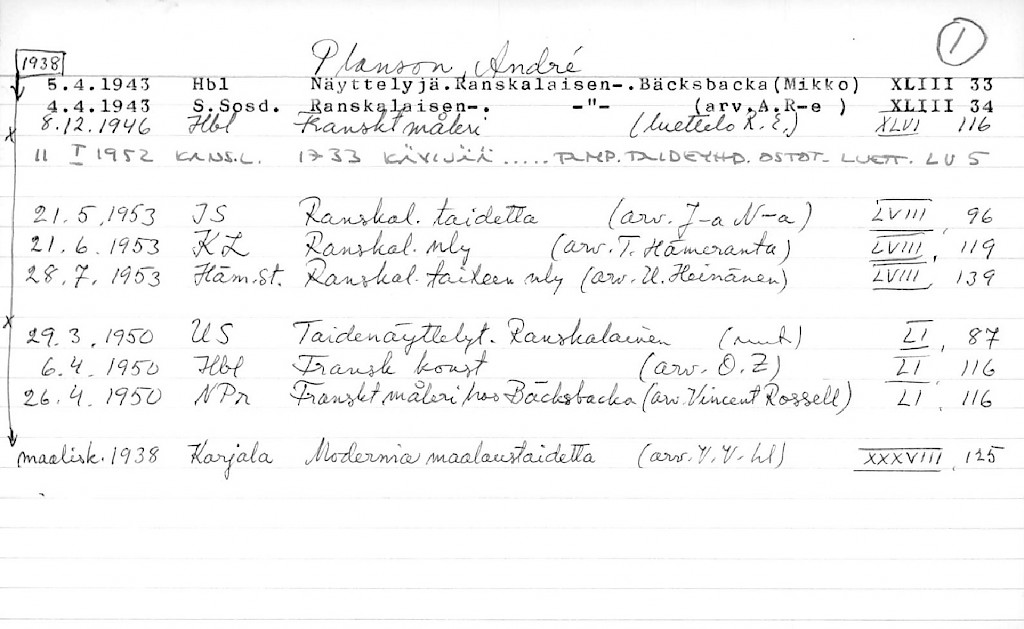 1
1938 Planson, André
5.4.1943 Hbl Näyttelyjä.Ranskalaisen-.Bäcksbacka(Mikko) XLIII 33
4.4.1943 S.Sosd. Ranskalaisen-. -"- (arv.A.R-e ) XLIII 34
x 8.12.1946 Hbl Franskt måleri (luettelo R.E.) XLVI 116
11 I 1952 KANS.L. 1733 KÄVIJÄÄ ..... TAMP. TAIDEYHD. OSTOT- LUETT. LV 5
21.5.1953 IS Ranskal. taidetta (arv. J-a N-a) LVIII, 96
21.6.1953 KL Ranskal. nly (arv. T. Hämeranta) LVIII, 119
28.7.1953 Häm.St. Ranskal. taiteen nly (arv. U. Heinänen) LVIII, 139
x 29.3.1950 US Taidenäyttelyt. Ranskalainen LI, 87
6.4.1950 Hbl Fransk konst (arv. O.Z) LI, 116
26.4.1950 NPr Franskt måleri hos Bäcksbacka (arv. Vincent Rossell) LI, 116
maalisk.1938 Karjala Modernia maalaustaidetta (arv. V.V-hl) XXXVIII, 125